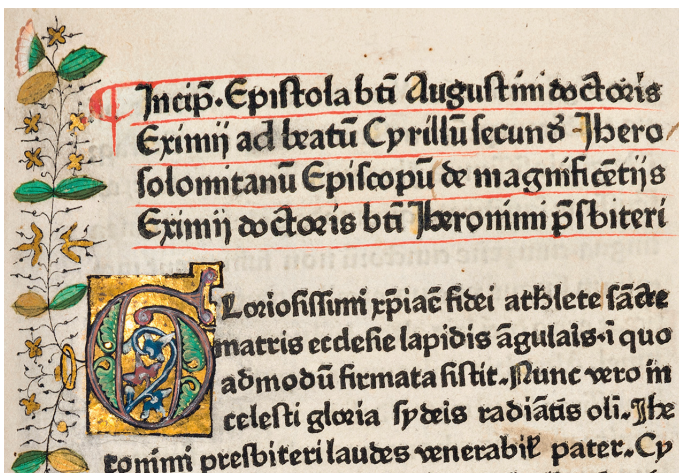 Incip̄. Epistola bt̄i Augustini doctoris
Eximij ad beatū Cyrillū secundū Ihero
solomitanū Episcopū de magnificētijs
Eximij doctoris bt̄i Iheronimi p̄sbiteri
Gloriosissimi xp̄iāe fidei athlete sācte
matris ecclesie lapidis āgularis. ī quo
admodū firmata sistit. Nunc vero in
celesti gloria sydeis radiātis oli. Ihe
ronimi presbiteri laudes venerabil̄ pater. Cy